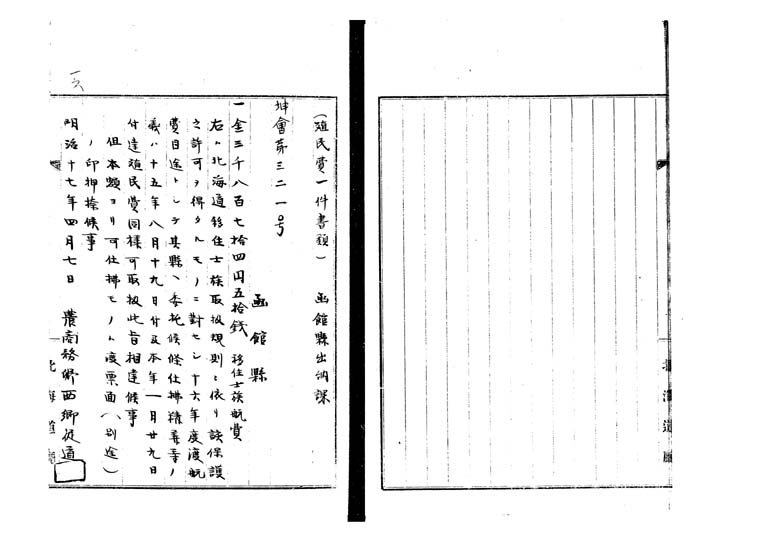 (殖民費一件書類) 函館縣出納課
坤會第三二一号
函館縣
一金三千八百七拾四円五拾銭 移住士族航費
右ハ北海道移住士族取扱規則ニ依リ該保護
之許可ヲ得タルモノニ對セシ十六年度渡航
費目途トシテ其縣ヘ委托候條仕拂精算等ノ
義ハ十五年八月十九日付及本年一月廿九日
付達殖民費同様可取扱此旨相達候事
但本額ヨリ可仕拂モノハ渡票面(別途)
ノ印押捺候事
明治十七年四月七日 農商務卿西郷従道
北海道廳
北海道廳